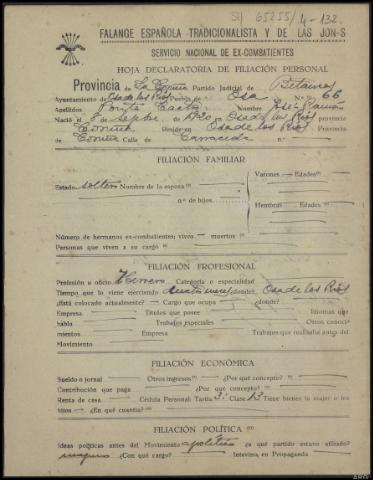 SI 65255/4-132
FALANGE ESPAÑOLA TRADICIONALISTA Y DE LAS JON-S
SERVICIO NACIONAL DE EX-COMBATIENTES
HOJA DECLARATORIA DE FILIACIÓN PERSONAL
Provincia de La Coruña Partido Judicial de Betanzos
Ayuntamiento de Oza de los Ríos de Oza N.º 66
Apellidos Nombre José Ramón
Nació el 8 de Sepbre. de 1920 en Oza de los Ríos provincia
Coruña Reside en Oza de los Ríos Provincia
de Coruña Calle de n.º
FILIACIÓN FAMILIAR
Estado soltero Nombre de la esposa
Varones Edades
n.º de hijos
Hembras Edades
Número de hermanos ex-combatientes; vivos — muertos
Personas que viven a su cargo
FILIACIÓN PROFESIONAL
Profesión u oficio Herrero Categoría o especialidad
Tiempo que lo viene ejerciendo dónde? Oza de los Ríos
¿Está colocado actualmente? Cargo que ocupa ¿donde?
Empresa Títulos que posee Idiomas que
habla Trabajos especiales Otros conoci-
mientos Empresa Trabajos que realizaba antes del
Movimiento
FILIACIÓN ECONÓMICA
Sueldo o jornal Otros ingresos ¿Por qué concepto?
Contribución que paga ¿Por qué concepto?
Renta de casa Cédula Personal: Tarifa 3ª Clase 13 Tiene bienes la mujer o los
hijos ¿En qué cuantía?
FILIACIÓN POLÍTICA
Ideas políticas antes del Movimiento apolítico ¿a qué partido estuvo afiliado?
ninguno ¿Con qué cargo? Intervino en Propaganda